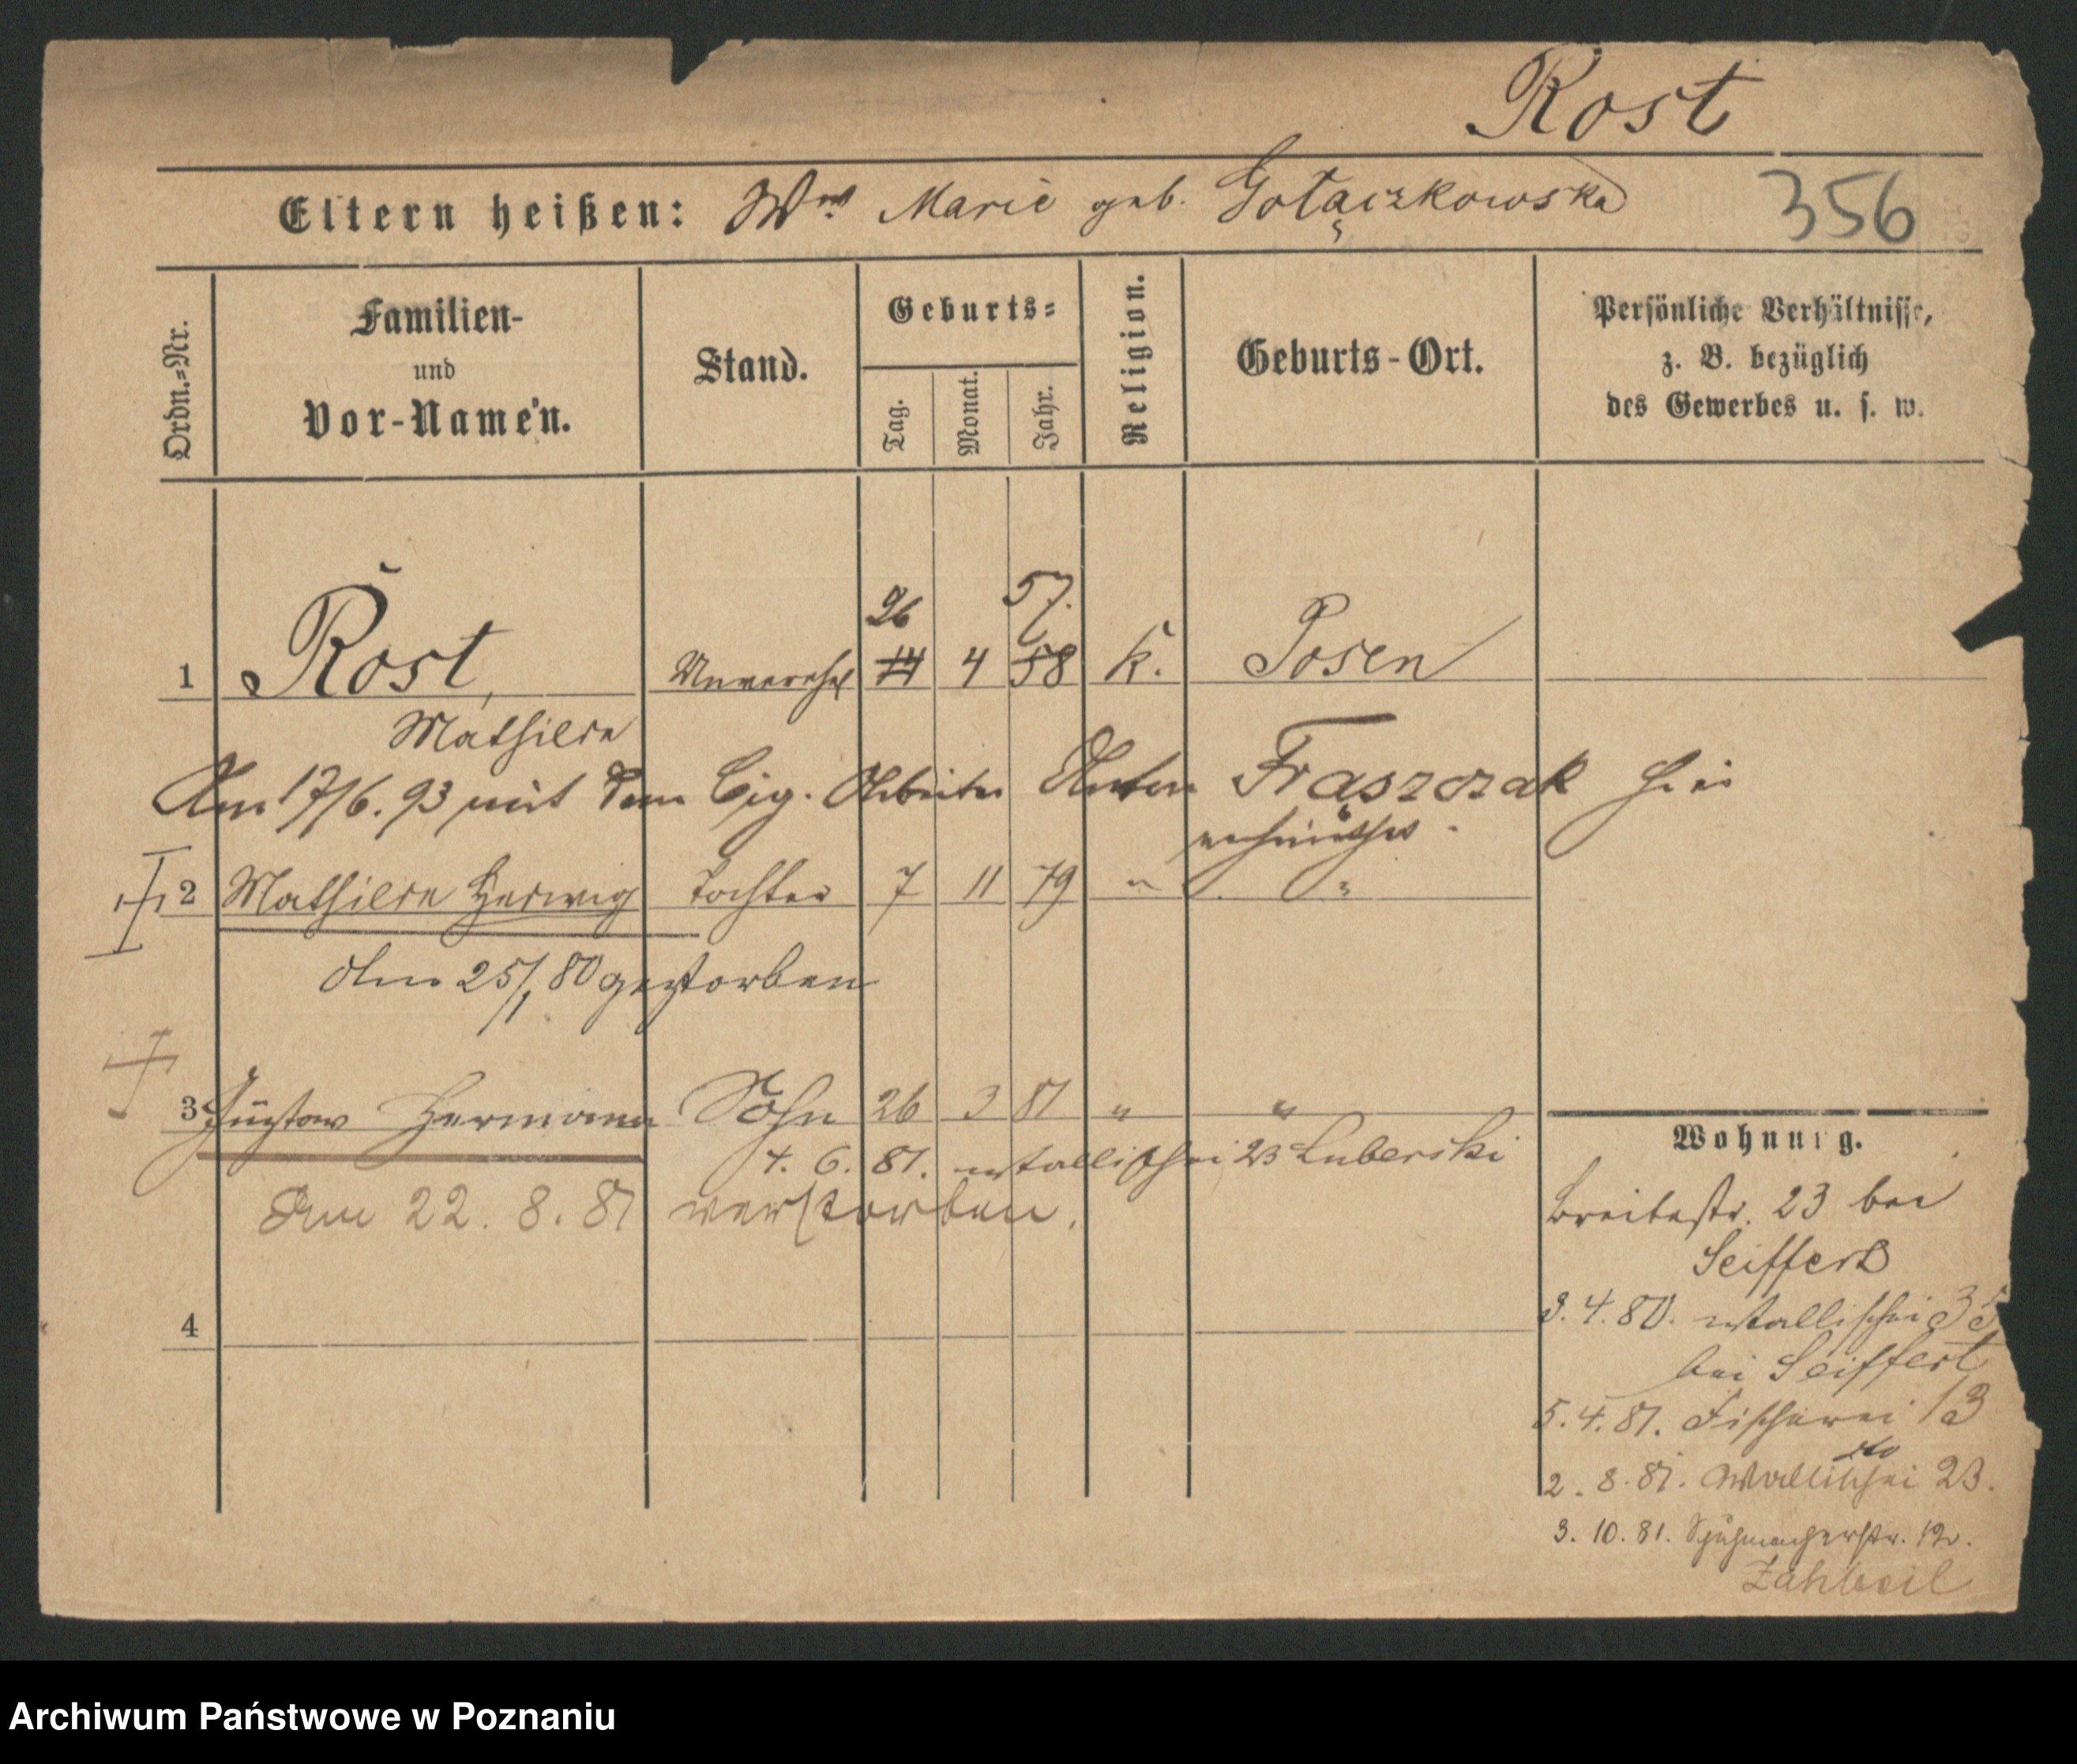 Rost
Eltern heißen: Wwe Marie geb. Gołączkowska 356
Ordn.=Nr.
Familien-
und
Vor-Namen.
Stand.
Geburts=
Tag.
Monat.
Jahr.
Religion.
Geburts-Ort.
Persönliche Verhältnisse,
z. B. bezüglich
des Gewerbes u. s. w.
26 57.
1 Rost, Unverehel 14 4 58 k. Posen
Mathilde
Am 17/6. 93 mit dem Cig. Arbeiter Anton Fraszczak hier
2 Mathilde Hedwig Tochter 7 11 79 " "
Am 25/1 80 gestorben
3 Gustav Hermann Sohn 26 3 81 " "
4. 6. 81. Wallischei 23 Luberski
Am 22. 8. 81 verstorben.
4
Wohnung.
Breitestr. 23 bei
Seiffert
3. 4. 80. Wallischei 35
bei Seiffert
5. 4. 81. Fischerei 13
2. 8. 81. Wallischei 23.
3. 10. 81. Schuhmacherstr. 12.
Zahbeil
Archiwum Państwowe w Poznaniu